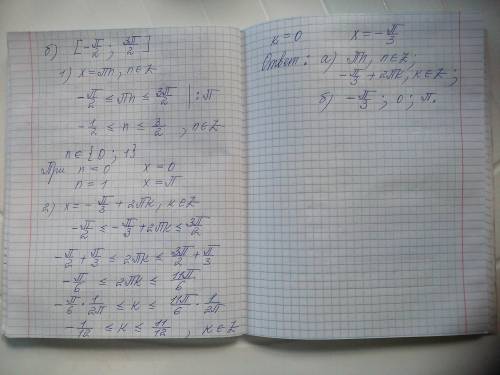 б) [-π/2 ; 3π/2]
1) x = πn, n∈Z
-π/2 ≤ πn ≤ 3π/2 | :π
-1/2 ≤ n ≤ 3/2 , n∈Z
n∈{0 ; 1}
При n = 0 x = 0
n = 1 x = π
2) x = -π/3 + 2πk, k∈Z
-π/2 ≤ -π/3 + 2πk ≤ 3π/2
-π/2 + π/3 ≤ 2πk ≤ 3π/2 + π/3
-π/6 ≤ 2πk ≤ 11π/6
-π/6 · 1/2π ≤ k ≤ 11π/6 · 1/2π
-1/12 ≤ k ≤ 11/12 , k∈Z
k = 0 x = -π/3
Ответ: а) πn, n∈Z;
-π/3 + 2πk, k∈Z;
б) -π/3 ; 0 ; π.